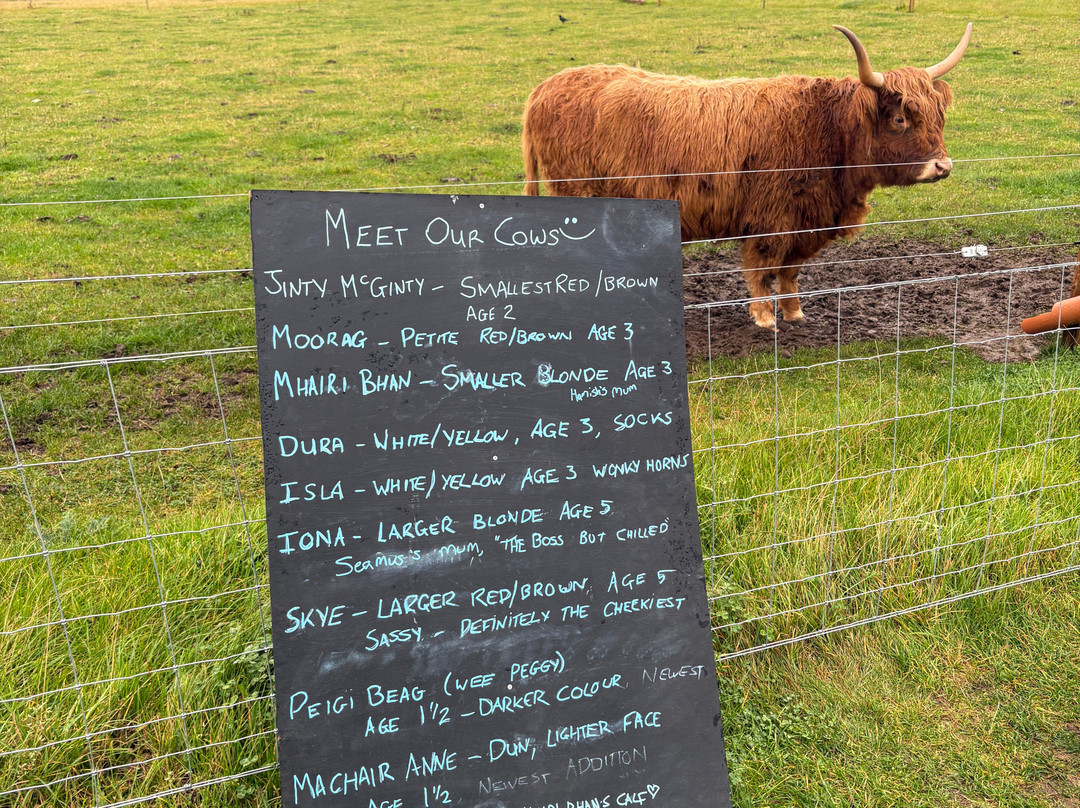 MEET OUR COWS
JINTY McGINTY - SMALLEST RED/BROWN
AGE 2
MOORAG - PETITE RED/BROWN AGE 3
MHAIRI BHAN - SMALLER BLONDE AGE 3
Hamish's mum
DURA - WHITE/YELLOW, AGE 3, SOCKS
ISLA - WHITE/YELLOW AGE 3 WONKY HORNS
IONA - LARGER BLONDE AGE 5
SEAMUS'S MUM, "THE BOSS BUT CHILLED"
SKYE - LARGER RED/BROWN, AGE 5
SASSY - DEFINITELY THE CHEEKIEST
PEIGI BEAG (WEE PEGGY)
AGE 1 1/2 - DARKER COLOUR, NEWEST
MACHAIR ANNE - DUN, LIGHTER FACE
AGE 1 1/2. NEWEST ADDITION
BHAN'S CALF♡